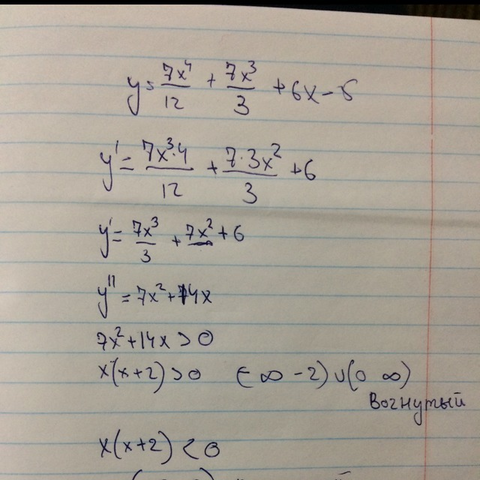 y = 7x⁴/12 + 7x³/3 + 6x - 5
y' = 7x³·4/12 + 7·3x²/3 + 6
y' = 7x³/3 + 7x² + 6
y'' = 7x² + 14x
7x² + 14x > 0
x(x+2) > 0 (-∞ -2) ∪ (0 ∞)
Вогнутый
x(x+2) < 0